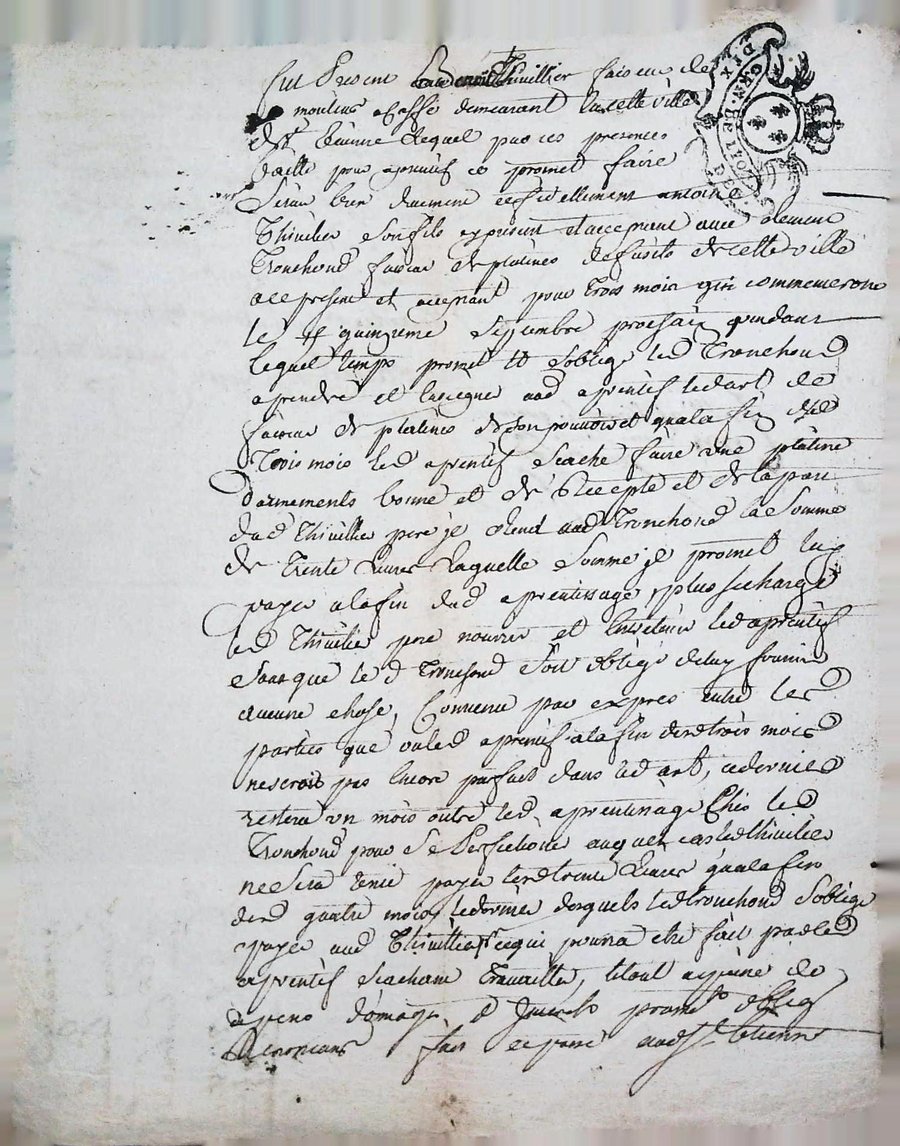 fut Present Benoit Thivillier faiseur de
moulins a Caffé demeurant en cette ville
de St Etienne Lequel par ces presences
baille pour aprentif et promet faire
Servir bien duement et fidellement antoine
Thivilier son fils cy present et acceptant avec clement
Tronchond faiseur de platines de fusils de cette ville
aussy present et aceptant pour trois mois qui commenceront
le quinzieme Septembre prochain pendant
lequel temps promet et s'oblige led Tronchond
aprendre et enseigner aud aprentif led art de
faiseur de platines de son pouvoir et qu'a la fin desd
Trois mois led aprentif scache faire une platine
darmements bonne et de Recepte et de la part
dud Thivillier pere je donne aud Tronchond la somme
de trente livres laquelle somme je promet luy
payer a la fin dud aprentissage, plus se charge
led Thivilier pere nourrir et entretenir led aprentif
sans que le d Tronchond soit obligé de luy fournir
aucune chose, Convenu par expres entre les
parties que ou led aprentif a la fin desd trois mois
ne seroit pas encore parfait dans led art, ce dernier
restera un mois outre led. aprentissage chés led
Tronchond pour se Perfectioner auquel cas led thivilier
ne sera tenu payer lesd trente livres qu'a la fin
desd quatre mois, le dernier desquels led tronchond s'oblige
payer aud Thivillier ce qui pourra etre fait par led
aprentif scachant travailler, le tout a peine de
depens domages et Interets promet oblige
Renonciant fait et passé aud St Etienne
DIX DEN
GEN. DE LYON